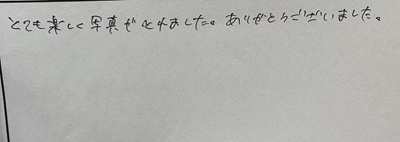 とても楽しく写真がとれました。ありがとうございました。